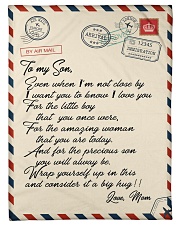 BY AIR MAIL
12345
To my Son,
Even when I'm not close by
I want you to know I love you
For the little boy
that you once were,
For the amazing woman
that you are today.
And for the precious son
you will alway be.
Wrap yourself up in this
and consider it a big hug!!
Love, Mom